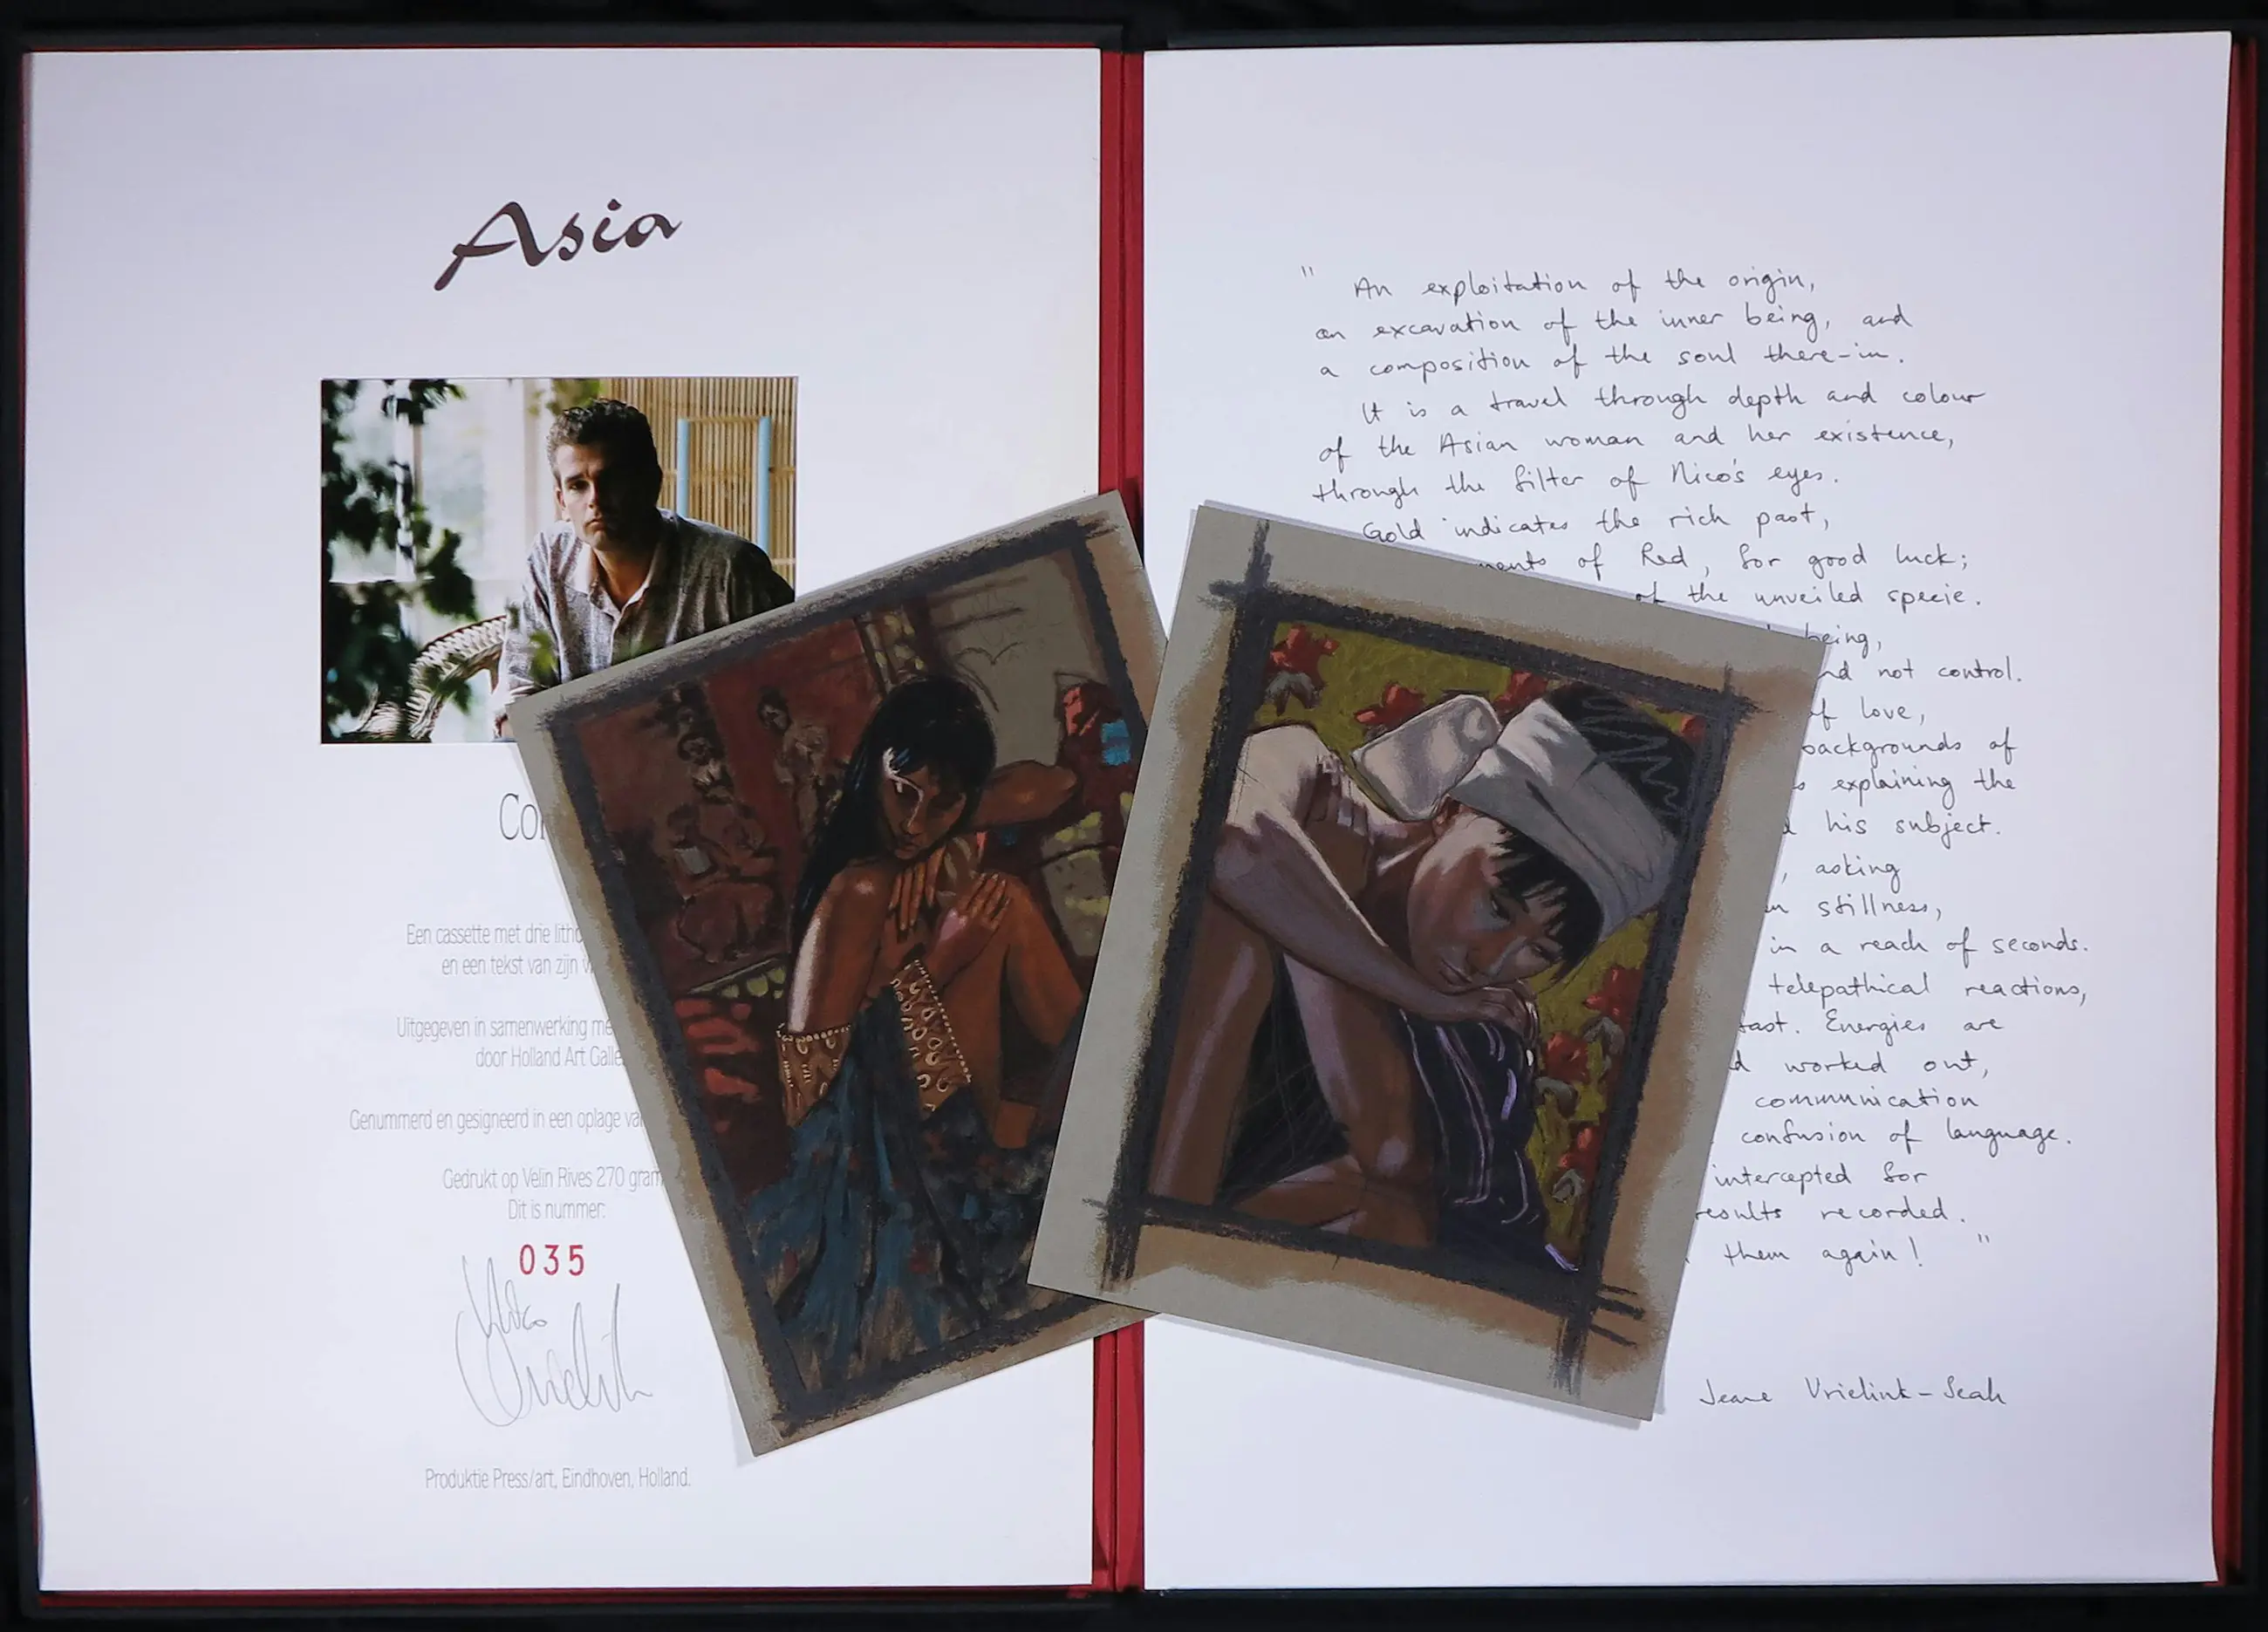 Asia
Een cassette met drie
en een tekst van zijn
Uitgegeven in samenwerking
door Holland Art
Genummerd en gesigneerd in een oplage
Gedrukt op Velin Rives 270
Dit is nummer:
035
Nico Vrielink
Produktie Press/art, Eindhoven, Holland.
" An exploitation of the origin,
an excavation of the inner being, and
a composition of the soul there-in.
It is a travel through depth and colour
of the Asian woman and her existence,
through the filter of Nico's eyes.
Gold indicates the rich past,
of Red, for good luck;
of the unveiled specie.
being,
not control.
of love,
backgrounds of
explaining the
his subject.
, asking
stillness,
in a reach of seconds.
telepathical reactions,
Energies are
worked out,
communication
confusion of language.
intercepted for
results recorded.
them again! "
Jeane Vrielink-Seah